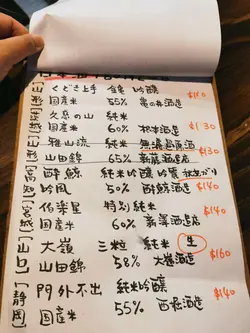 [山形] くどき上手 純米 吟醸 $140
国産米 55% 亀の井酒造
久慈の山 純米 $130
国産米 60% 根本酒造
[山形] 雅山流 純米 無濾過原酒 $130
山田錦 65% 新藤酒造店
[高知] 酔鯨 純米吟醸 吟麗 秋あがり $140
吟風 50% 酔鯨酒造
[宮城] 伯楽星 特別純米 $140
国産米 60% 新澤酒造店
[山口] 大嶺 三粒 純米 生 $160
山田錦 58% 大嶺酒造
[静岡] 門外不出 純米吟醸 $140
国産米 55% 西堀酒造